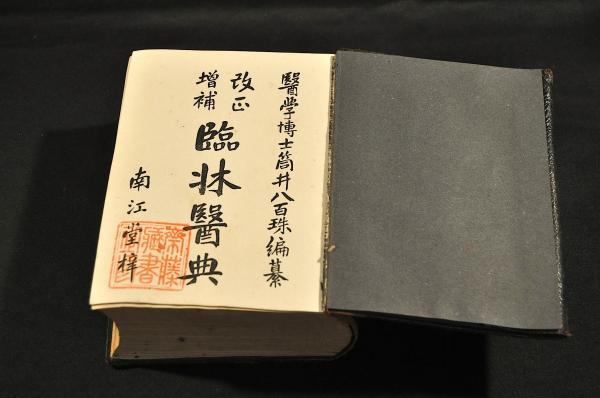 醫学博士筒井八百珠編纂
改正
增補
臨牀醫典
南江堂梓
藤
藏書